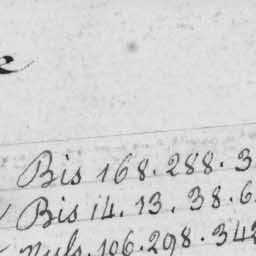 Bis 168. 288. 3
Bis 14. 13. 38. 6
106. 298. 342